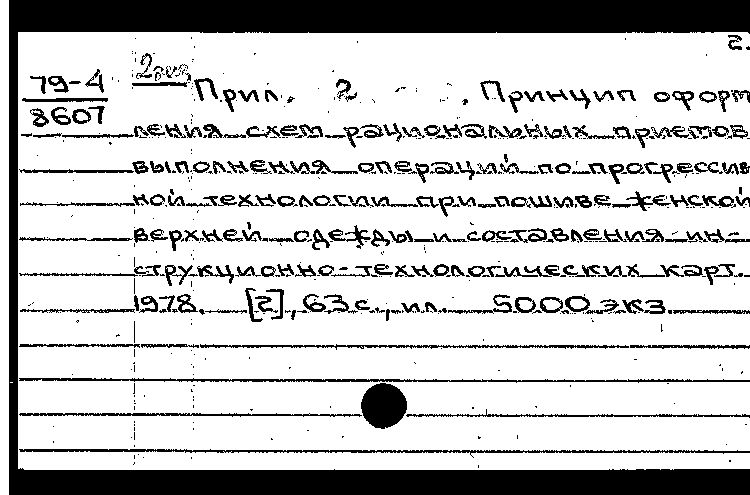 2.
2 экз
79-4
8607
Прил. 2 . Принцип оформ
ления схем рациональных приемов
выполнения операций по прогрессив
ной технологии при пошиве женской
верхней одежды и составления ин-
струкционно-технологических карт.
1978. [2], 63 с., ил. 5000 экз.